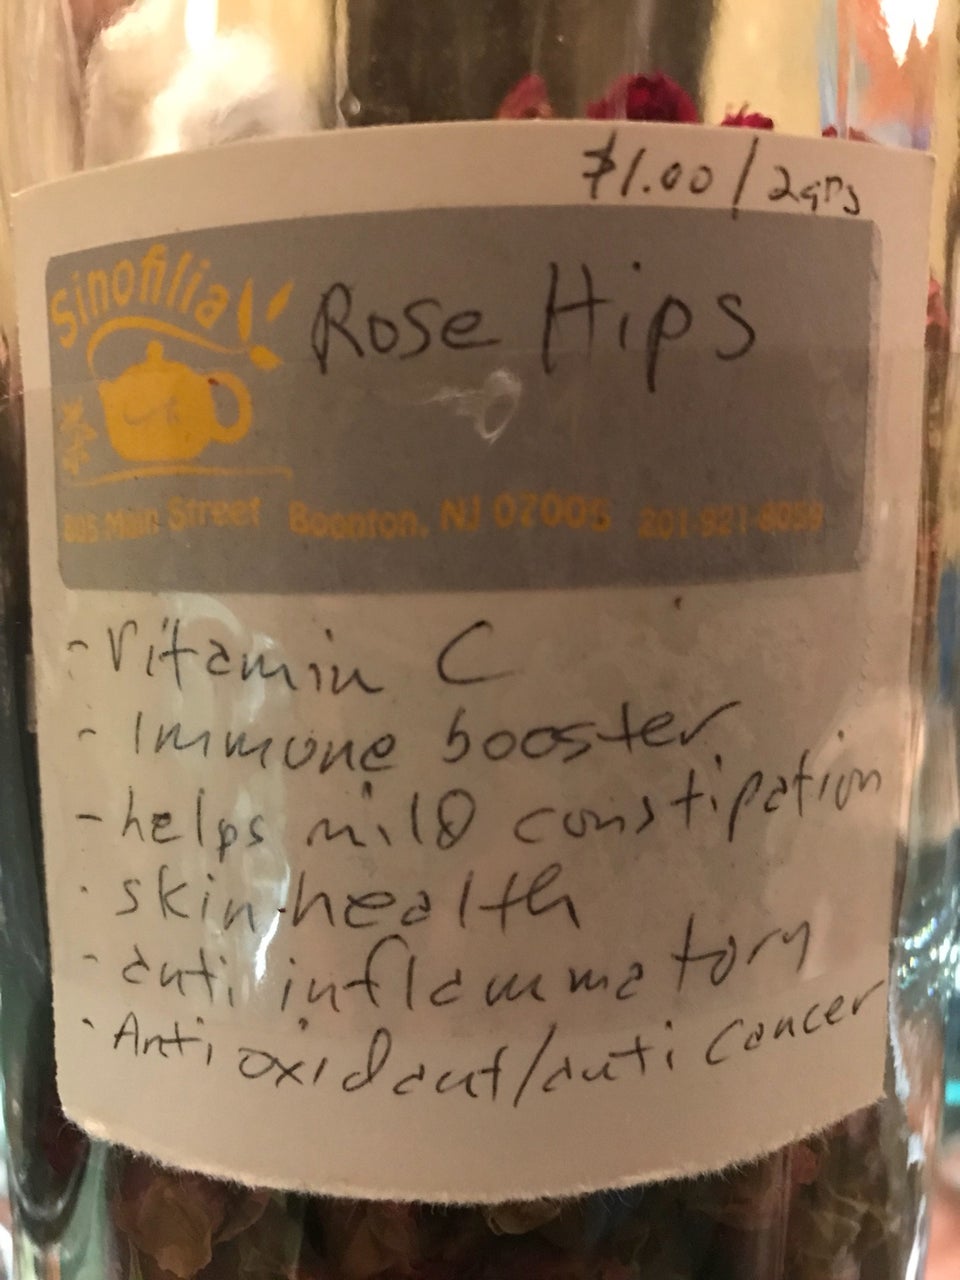 $1.00/2grs
Sinofilia
Rose Hips
茶
Main Street Boonton, NJ 07005 201-921-8059
- Vitamin C
- Immune booster
- helps mild constipation
- skin health
- anti inflammatory
- Anti oxidant/anti cancer